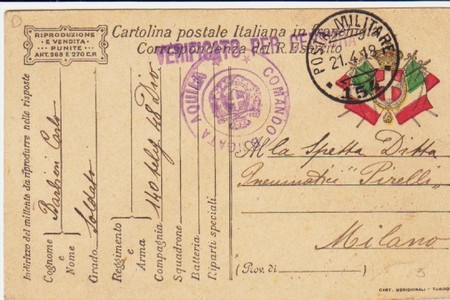 RIPRODUZIONE
E VENDITA
PUNITE
ART. 268 E 270 C.P.
Cartolina postale Italiana in
Corrispondenza del R. Esercito
VERIFICATO PER CENSURA
POSTA MILITARE
21.4.18
154
COMANDO BRIGATA AQUILA
Indirizzo del mittente da riprodurre nelle risposte
Cognome e Nome Barbieri Carlo
Grado Soldato
Reggimento e Arma
Compagnia
Squadrone
Batteria
Riparti speciali
Alla Spetta Ditta
Pneumatici "Pirelli"
Milano
(Prov. di )
CART. MERIDIONALI -